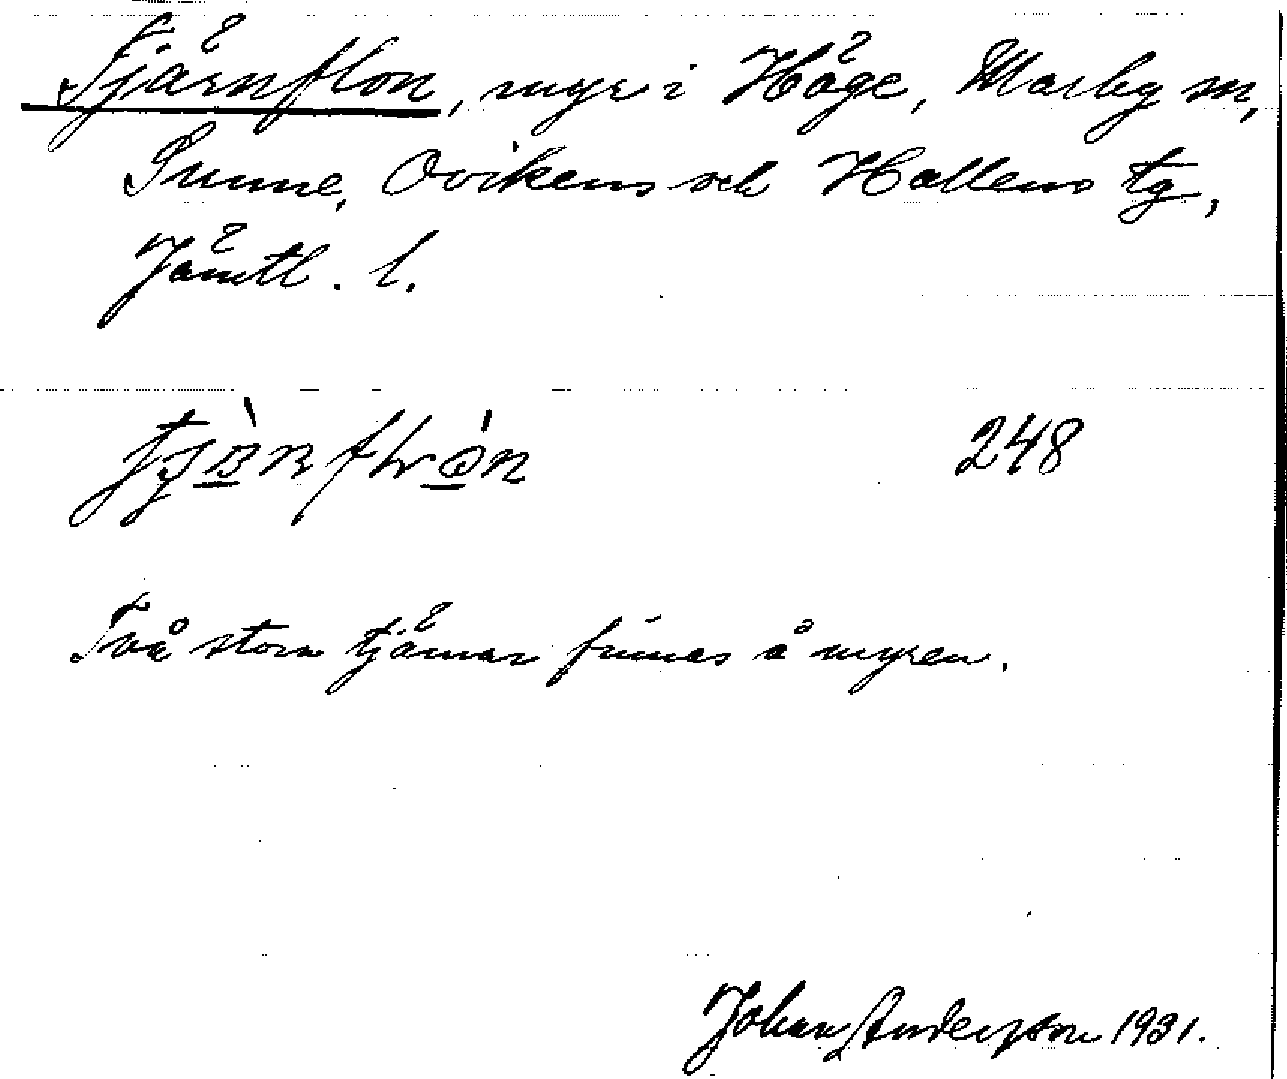 Tjärnflon, myr i Häge, Marby sn,
Sunne, Ovikens och Hallens tg,
Jämtl. l.
248
Två stora tjärnar finnas å myren.
Johan Anderson 1931.